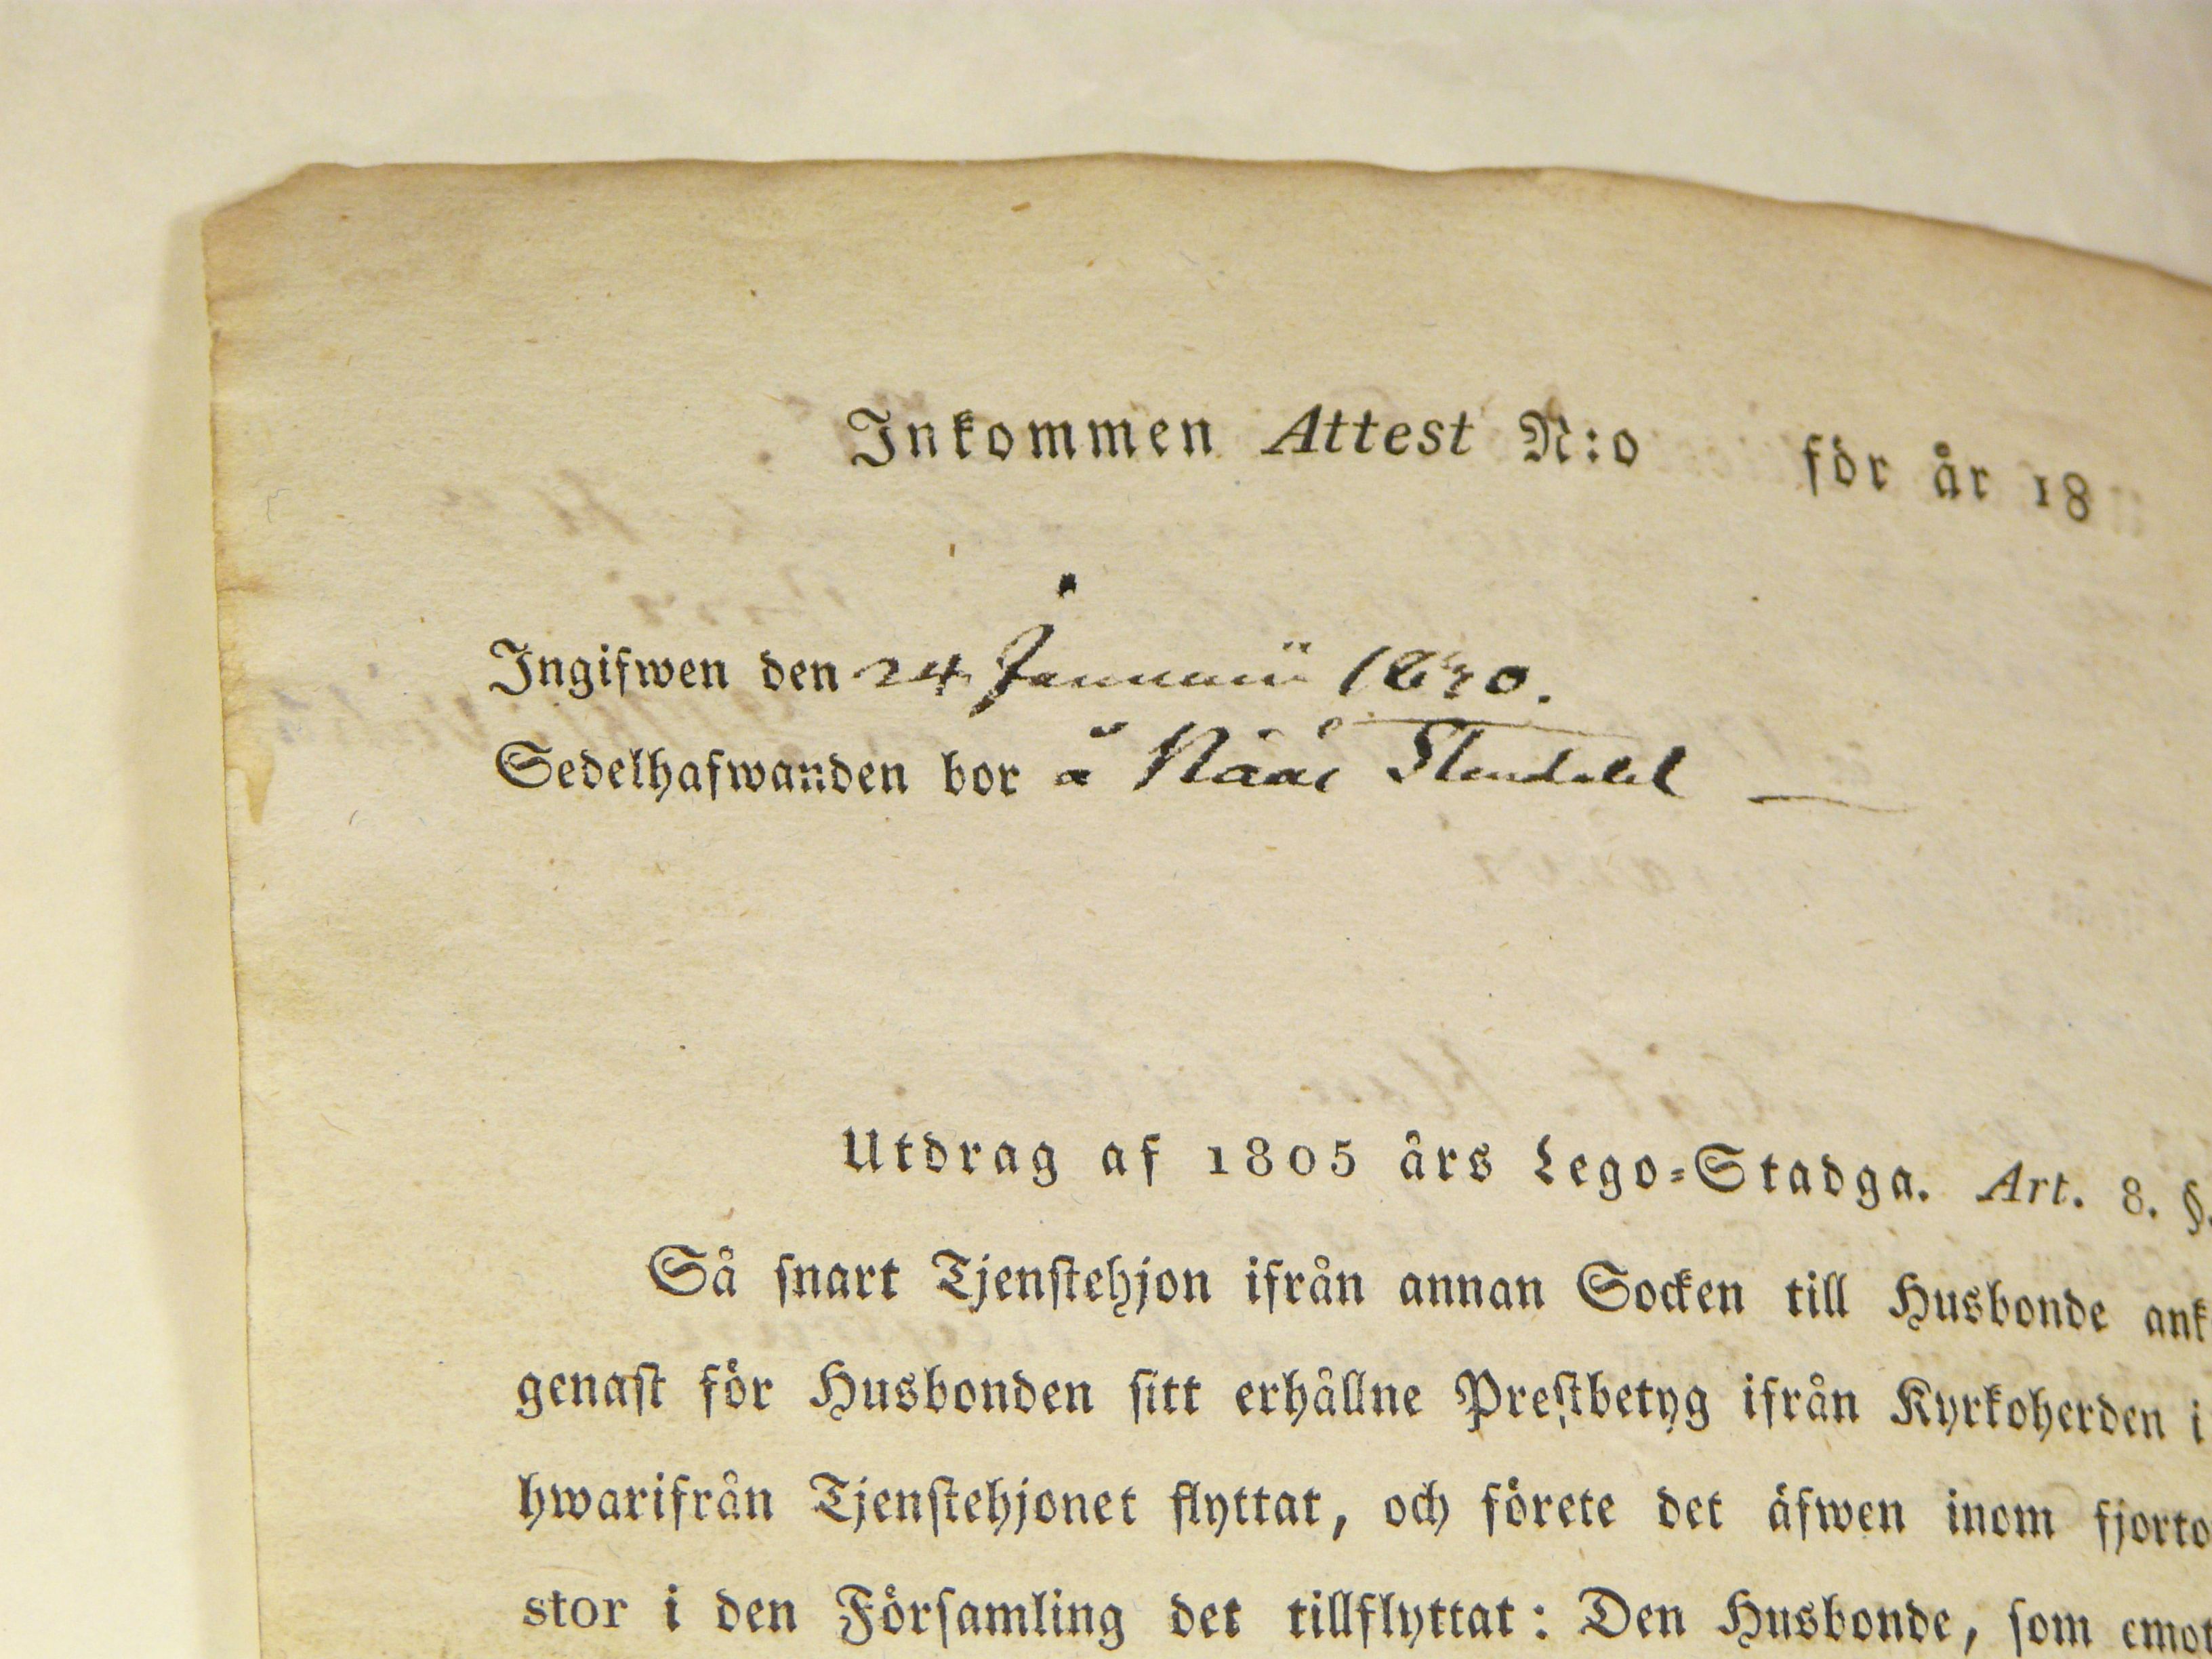 Inkommen Attest N:o för år 18
Ingifwen den 24 Januarii 1830.
Sedelhafwanden bor å Nääs
Utdrag af 1805 års Lego-Stadga. Art. 8. §.
Så snart Tjenstehjon ifrån annan Socken till Husbonde ank
genast för Husbonden sitt erhållne Prestbetyg ifrån Kyrkoherden i
hwarifrån Tjenstehjonet flyttat, och förete det äfwen inom fjorto
stor i den Församling det tillflyttat: Den Husbonde, som emot